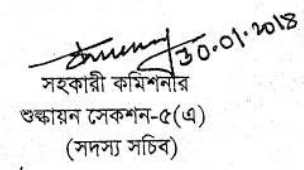 30.01.2018
সহকারী কমিশনার
শুল্কায়ন সেকশন-৫(এ)
(সদস্য সচিব)